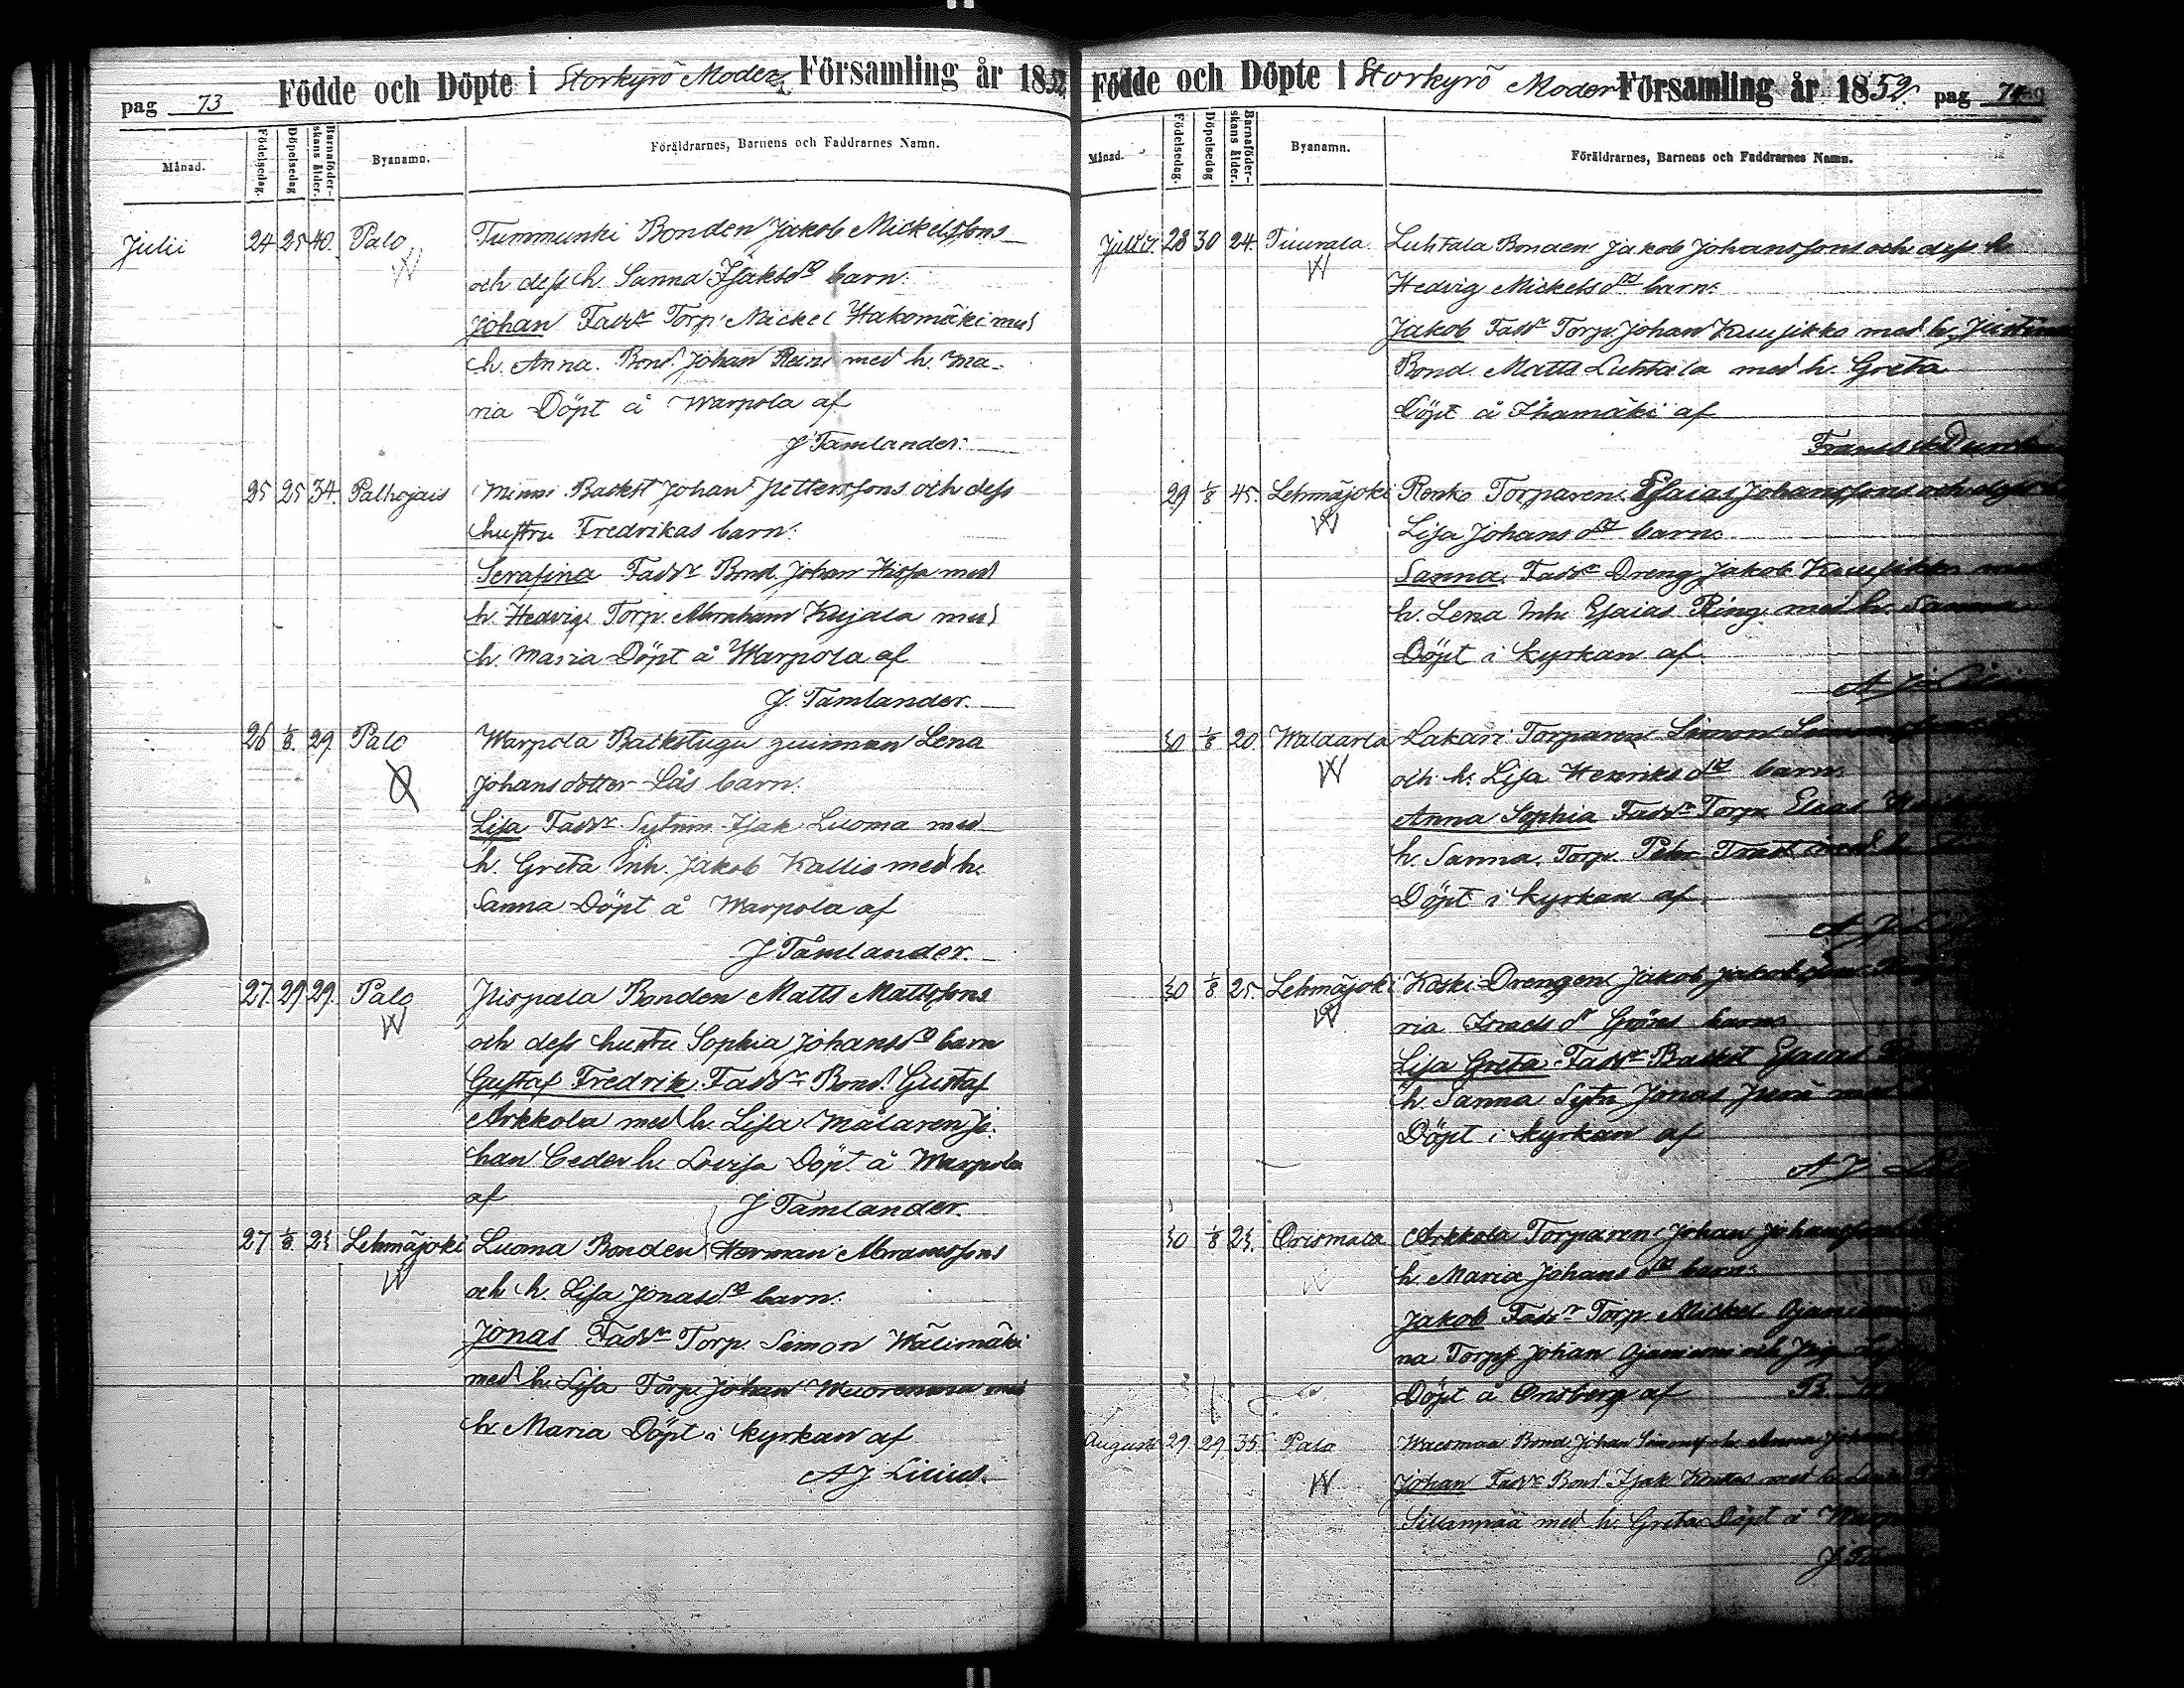 Födde och Döpte i Storkyrö Moder Församling år 1852
pag 73
Månad.
Födelsedag.
Döpelsedag
Barnaföder-
skans ålder.
Byanamn.
Föräldrarnes, Barnens och Faddrarnes Namn.
Julii 24 25 40. Palo Tummunki Bonden Jakob Mickelssons
W och dess h. Sanna Isaksd barn:
Johan Faddr Torp. Mickel Hakomäki med
h. Anna. Bond. Johan Reini med h. Ma-
ria Döpt å Warpola af
J Tamlander.
25 25 34. Palhojais Minni Backst Johan Petterssons och dess
hustru Fredrikas barn:
Serafina Faddr Bond. Johan Hissa med
h. Hedvig Torp. Abraham Kujala med
h. Maria Döpt å Warpola af
J. Tamlander.
26 1/8. 29. Palo Warpola Backstugu quinnan Lena
Johansdotter Lås barn:
Lisa Faddr Sytnm. Isak Luoma med
h. Greta Inh. Jakob Kallio med h.
Sanna Döpt å Warpola af
J Tamlander.
27. 29 29. Palo Pispala Bonden Matts Mattssons
W och dess hustu Sophia Johansd barn
Gustaf Fredrik Faddr Bond. Gustaf
Arkkola med h. Lisa Målaren Jo-
han Ceder h. Lovisa Döpt å Warpola
af J Tamlander.
27 1/8 23 Lehmäjoki Luoma Bonden Herman Abramssons
W och h. Lisa Jonasd barn:
Jonas Faddr Torp. Simon Wälimäki
med h. Lisa Torp. Johan Wuorenmaa med
h. Maria Döpt i kyrkan af
A J Lilius.
Födde och Döpte i Storkyrö Moder Församling år 1852. pag 74
Månad.
Födelsedag.
Döpelsedag
Barnaföder-
skans ålder.
Byanamn.
Föräldrarnes, Barnens och Faddrarnes Namn.
Julii. 28 30 24. Tuurala Luhtala Bonden Jakob Johanssons och dess h.
W Hedvig Mickelsd barn:
Jakob Faddr Torp. Johan Kuusikko med h. Justina
Bond. Matts Luhtala med h. Greta
Döpt å Ihamäki af
Frans
29 1/8 45. Lehmäjoki Renko Torparen Esaias Johanssons och dess
W Lisa Johansd barn:
Sanna. Faddr Dreng Jakob Kuusikko med
h. Lena Inh. Esaias Ring med h. Sanna
Döpt i kyrkan af
A J
30 1/8 20. Waldarla Lakari Torparen Simon
W och h. Lisa Henriksd barn:
Anna Sophia Faddr Torp. Elias
h. Sanna. Torp. Pehr Trast med h
Döpt i kyrkan af
A J
30 1/8 25. Lehmäjoki Koski Drengen Jakob Jakobsson
W ria Israelsd Gröns barn:
Lisa Greta Faddr Backst Esaias
h. Sanna Sytn Jonas Perä med
Döpt i kyrkan af
A J
30 1/8 23. Orismala Arkkola Torparen Johan Johanssons
W h. Maria Johansd barn:
Jakob Faddr Torp. Mickel Ojaniemi
na Torp. Johan Ojaniemi och Pig.
Döpt å Orisberg af
Augusti 29. 29. 35. Palo Waismaa Bond. Johan Simonss h. Anna Johans
W Johan Faddr Bond. Isak Knuus med h.
Sillanpää med h. Greta Döpt å
J